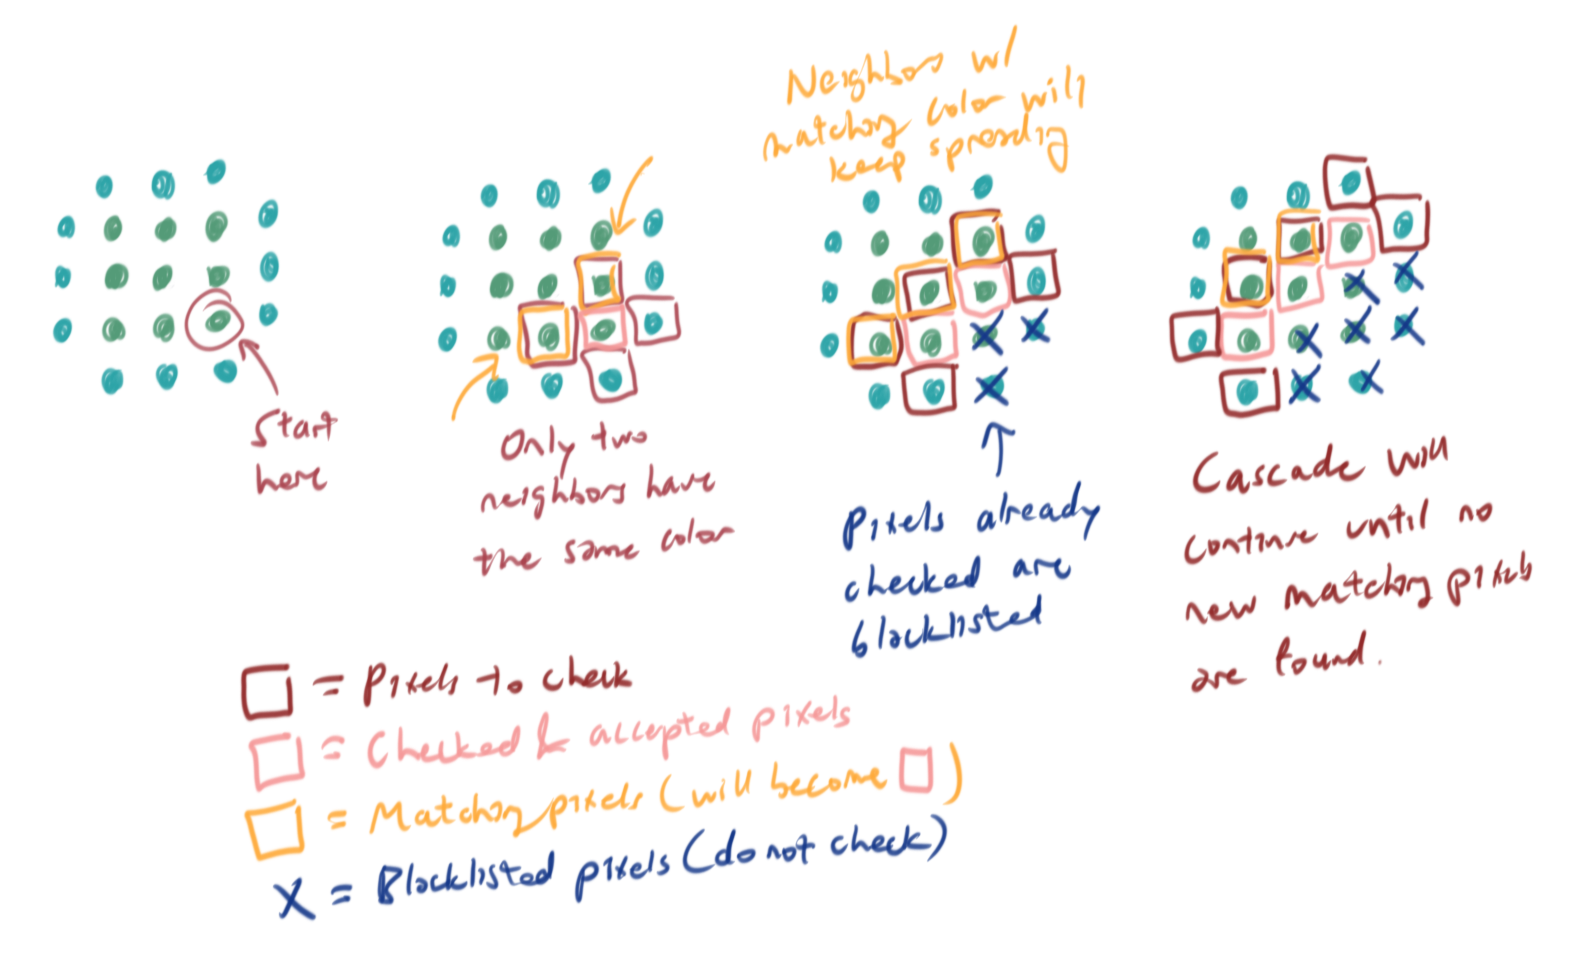 Neighbors w/
matching color will
keep spreading
Start
here
Only two
neighbors have
the same color
Pixels already
checked are
blacklisted
Cascade will
continue until no
new matching pixels
are found.
= Pixels to check
= Checked & accepted pixels
= Matching pixels (will become )
X = Blacklisted pixels (do not check)